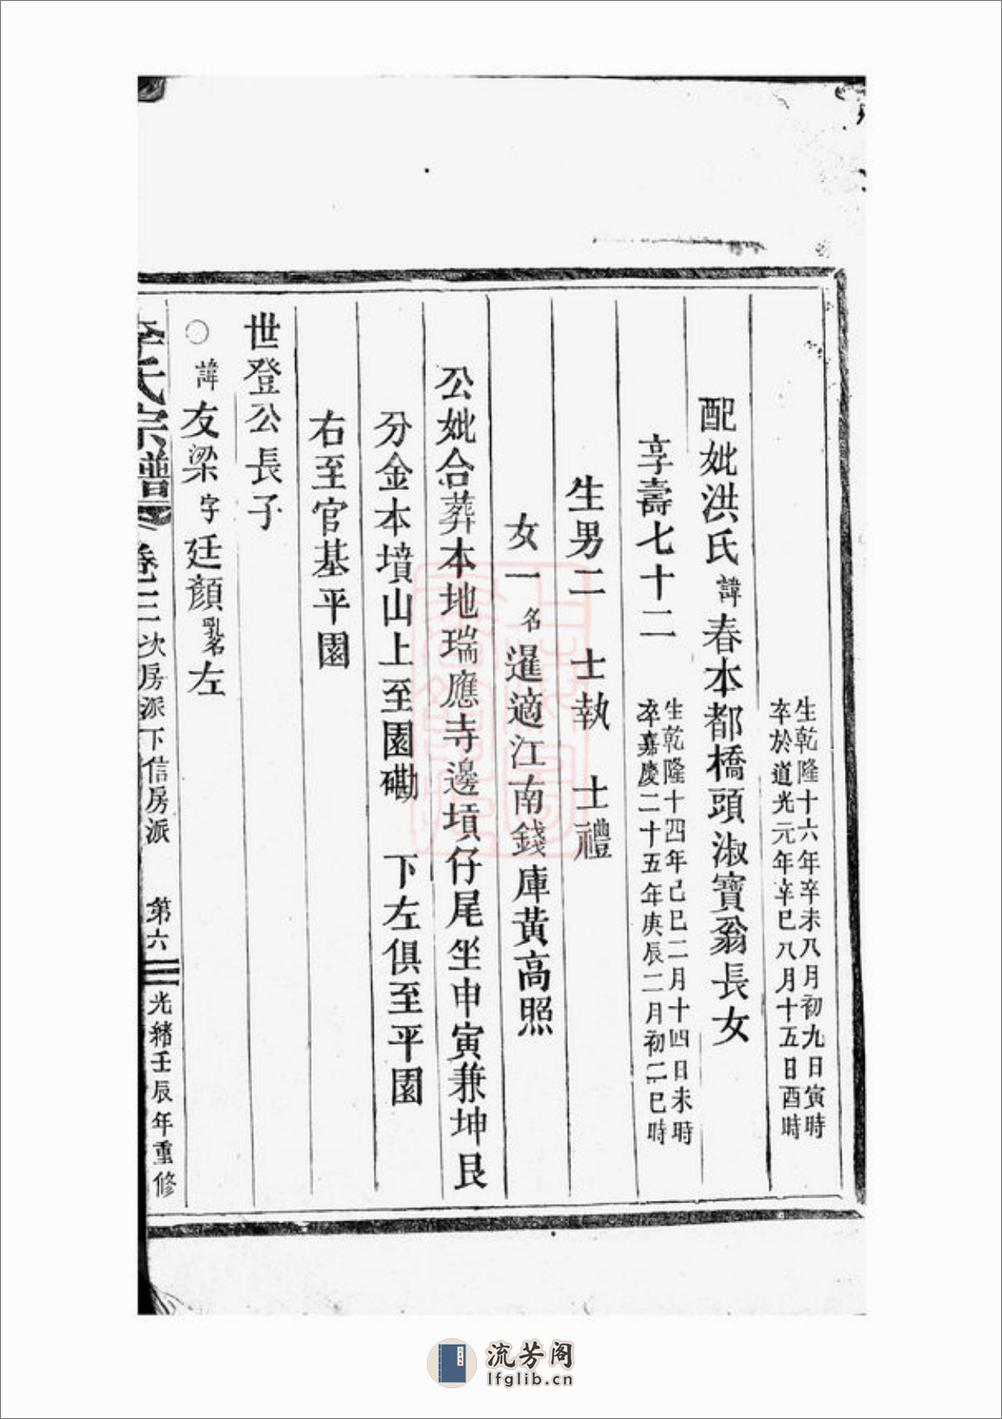 生乾隆十六年辛未八月初九日寅時
卒於道光元年辛巳八月十五日酉時
配妣洪氏諱春本都橋頭淑寶翁長女
享壽七十二
生乾隆十四年己巳二月十四日未時
卒嘉慶二十五年庚辰二月初二巳時
生男二 士執 士禮
女一名暹適江南錢庫黃高照
公妣合葬本地瑞應寺邊墳仔尾坐申寅兼坤艮
分金本墳山上至園磡 下左俱至平園
右至官基平園
世登公長子
○諱友梁字廷顏乳名左
李氏宗譜 卷三 次房派下信房派 第六 光緒壬辰年重修
流芳阁
lfglib.cn